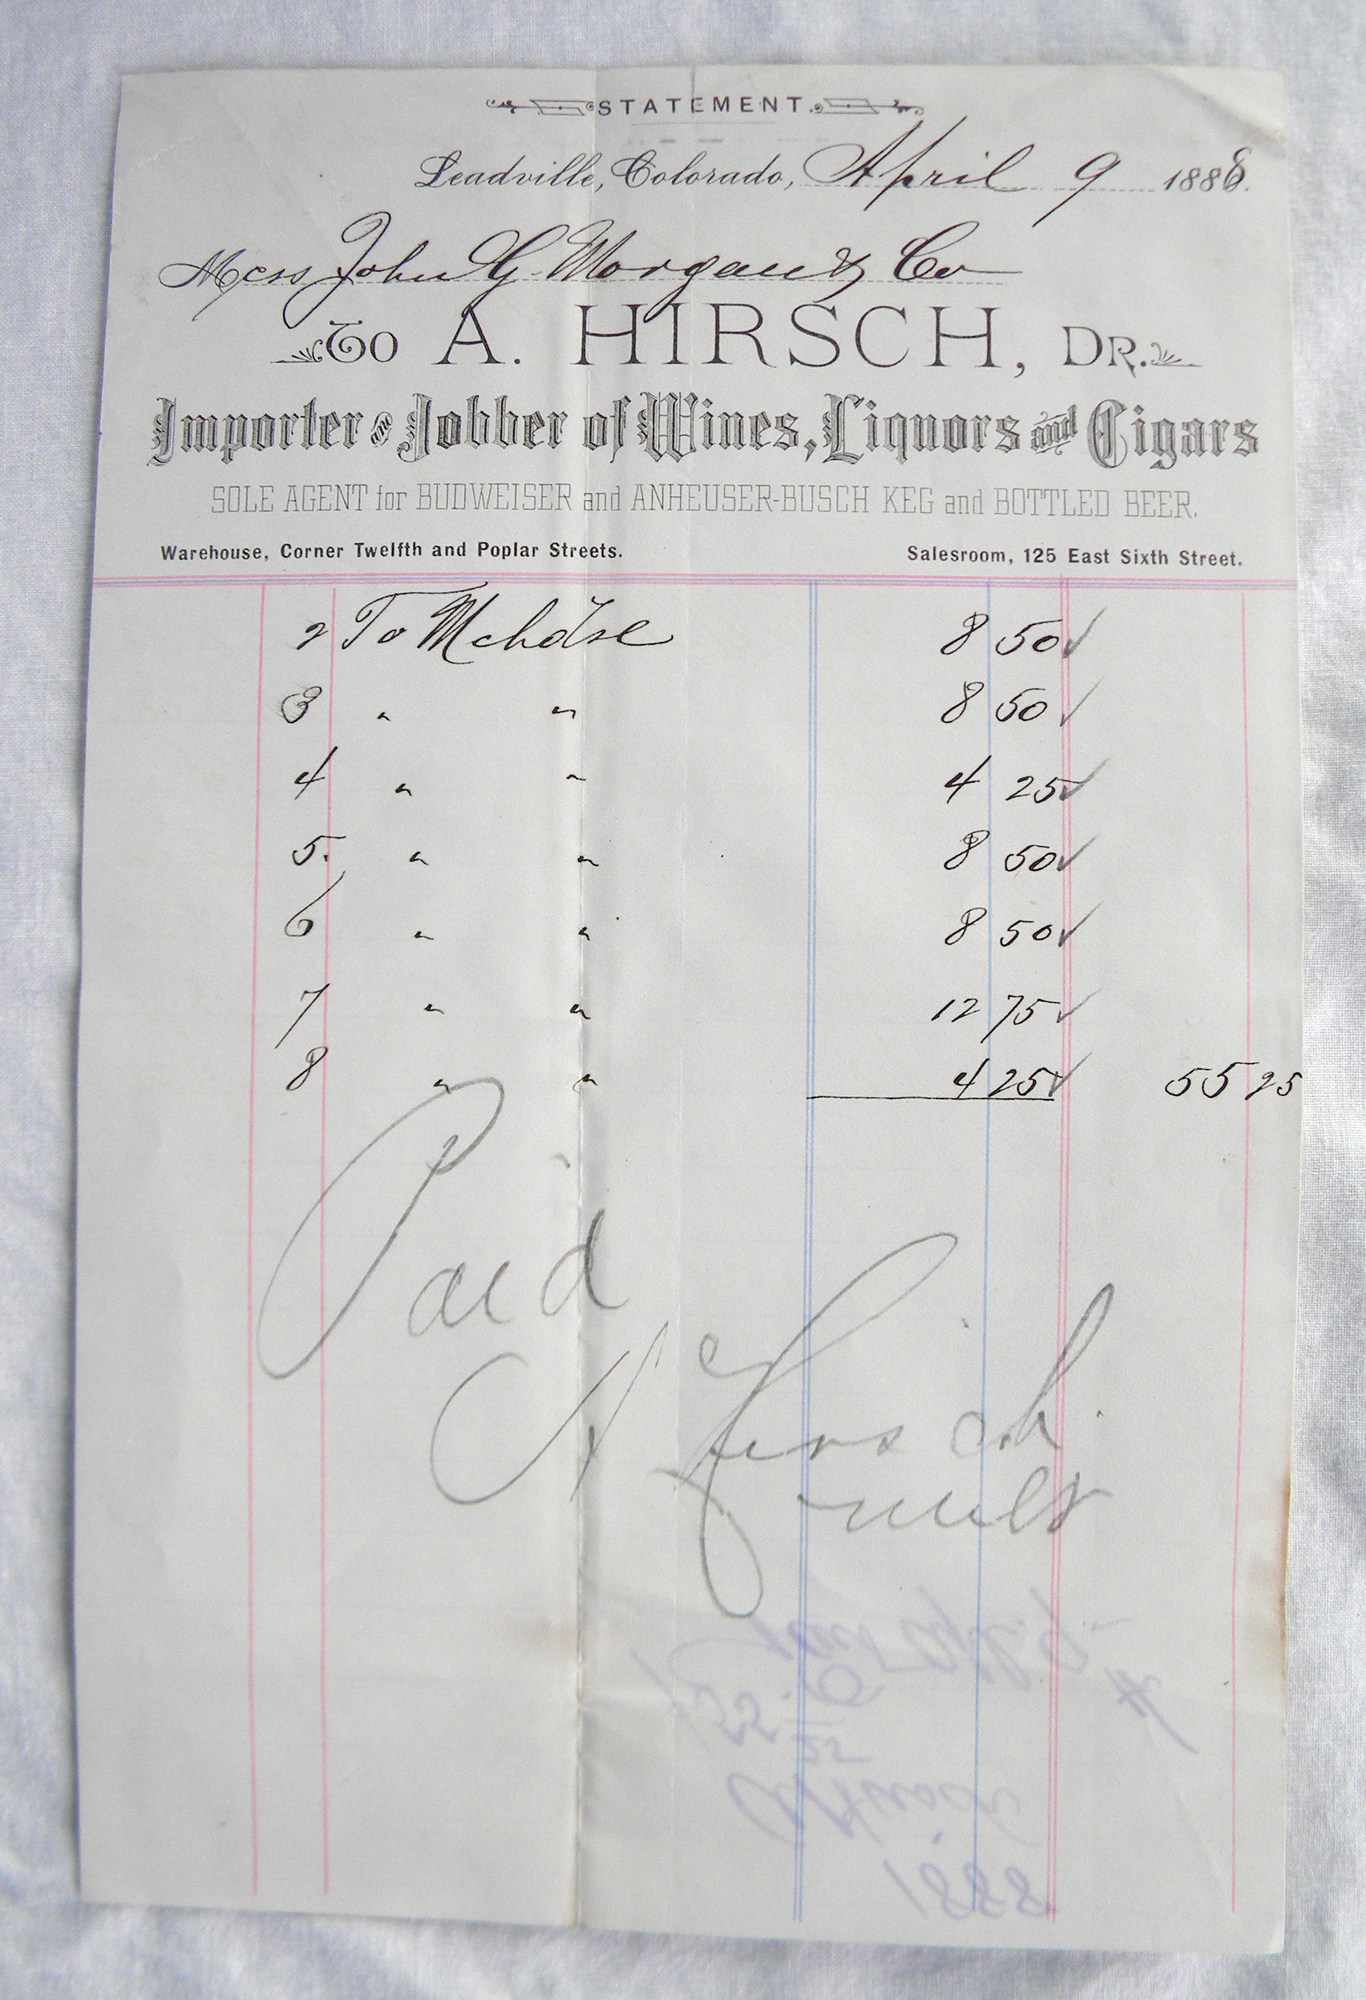 STATEMENT.
Leadville, Colorado, April 9 1888.
Mess John G. Morgan & Co
To A. HIRSCH, DR.
Importer and Jobber of Wines, Liquors and Cigars
SOLE AGENT for BUDWEISER and ANHEUSER-BUSCH KEG and BOTTLED BEER.
Warehouse, Corner Twelfth and Poplar Streets. Salesroom, 125 East Sixth Street.
2 To Mchdse 8 50 ✓
3 " " 8 50 ✓
4 " " 4 25 ✓
5. " " 8 50 ✓
6 " " 8 50 ✓
7 " " 12 75 ✓
8 " " 4 25 ✓ 55 25
Paid
A Hirsch
55 25
A Hirsch
1888